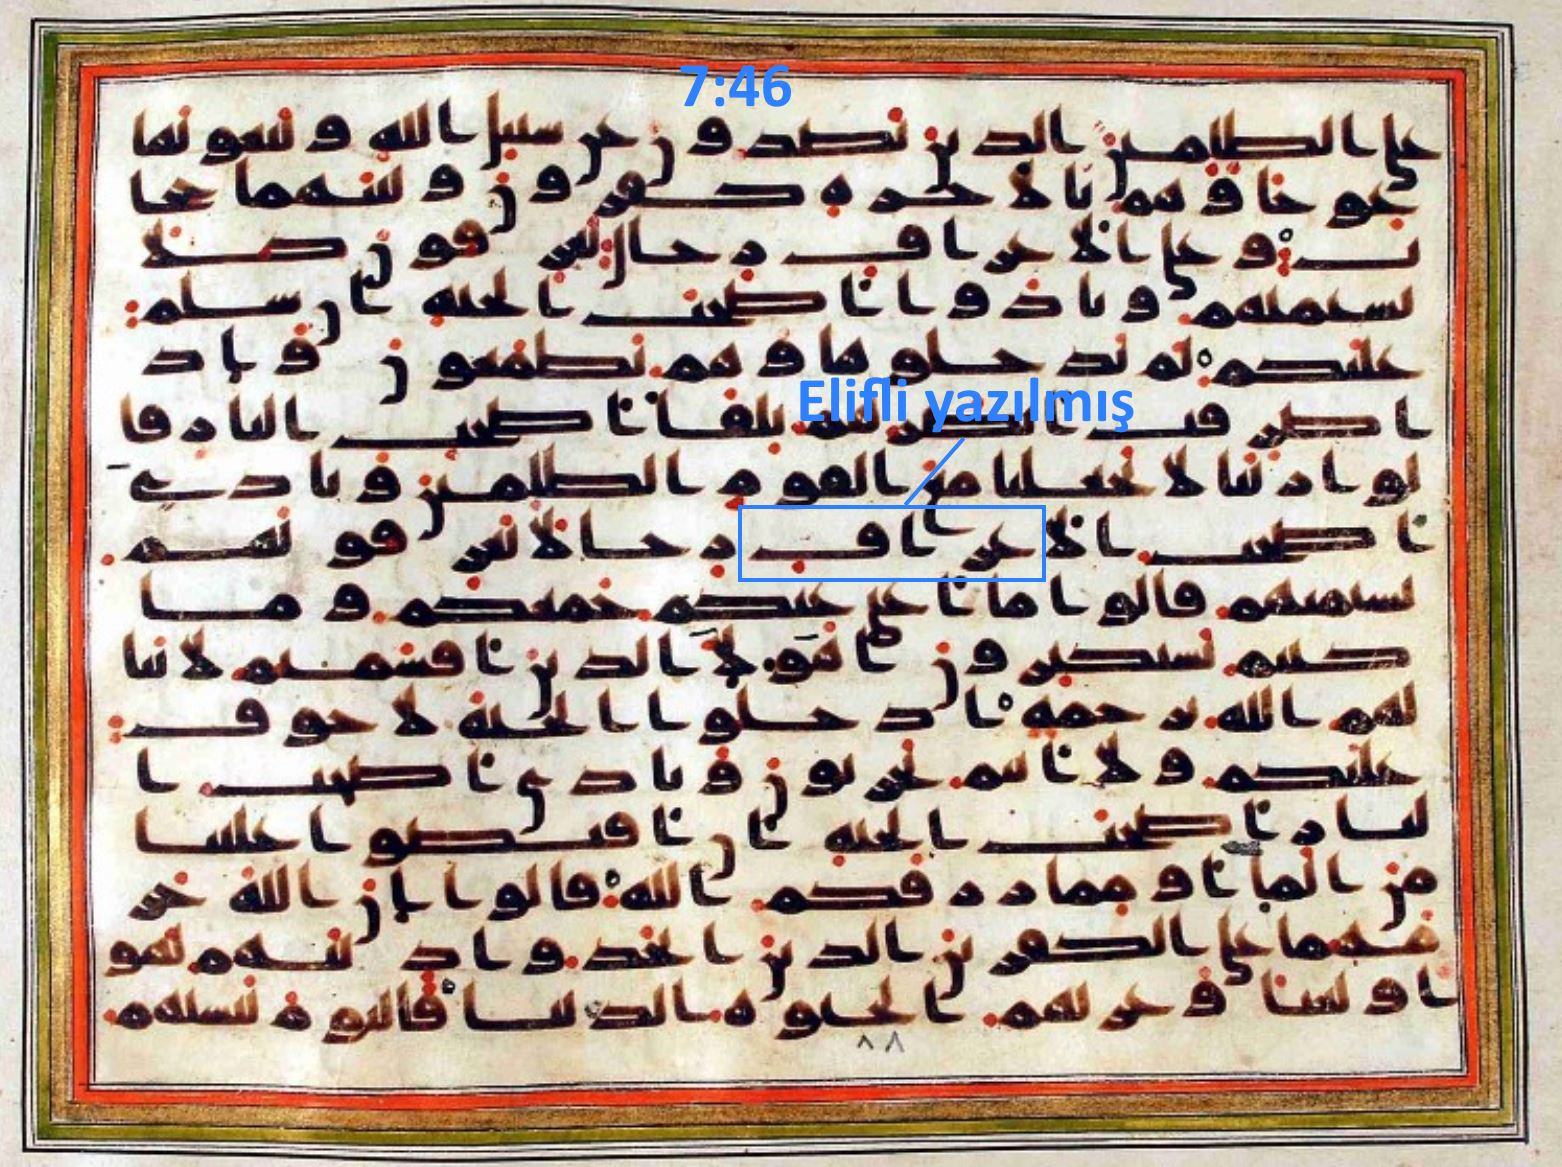 7:46
على الظلمين الذين يصدون عن سبيل الله ويبغونها
عوجا وهم بالاخرة كفرون وبينهما حجا
ب وعلى الاعراف رجال يعرفون كلا
بسيمهم ونادوا اصحب الجنة ان سلم
عليكم لم يدخلوها وهم يطمعون واذ
Elifli yazılmış
ا صرفت ابصرهم تلقا اصحب النار قا
لوا ربنا لا تجعلنا مع القوم الظلمين ونادى
اصحب الاعراف رجالا يعرفونهم
بسيمهم قالوا ما اغنى عنكم جمعكم وما
كنتم تستكبرون اهولا الذين اقسمتم لا ينا
لهم الله برحمة ادخلوا الجنة لا خوف
عليكم ولا انتم تحزنون ونادى اصحب ا
لنار اصحب الجنة ان افيضوا علينا
من الما او مما رزقكم الله قالوا ان الله حر
مهما على الكفرين الذين اتخذوا دينهم لهو
ا ولعبا وغرتهم الحيوة الدنيا فاليوم ننسهم
٨٨